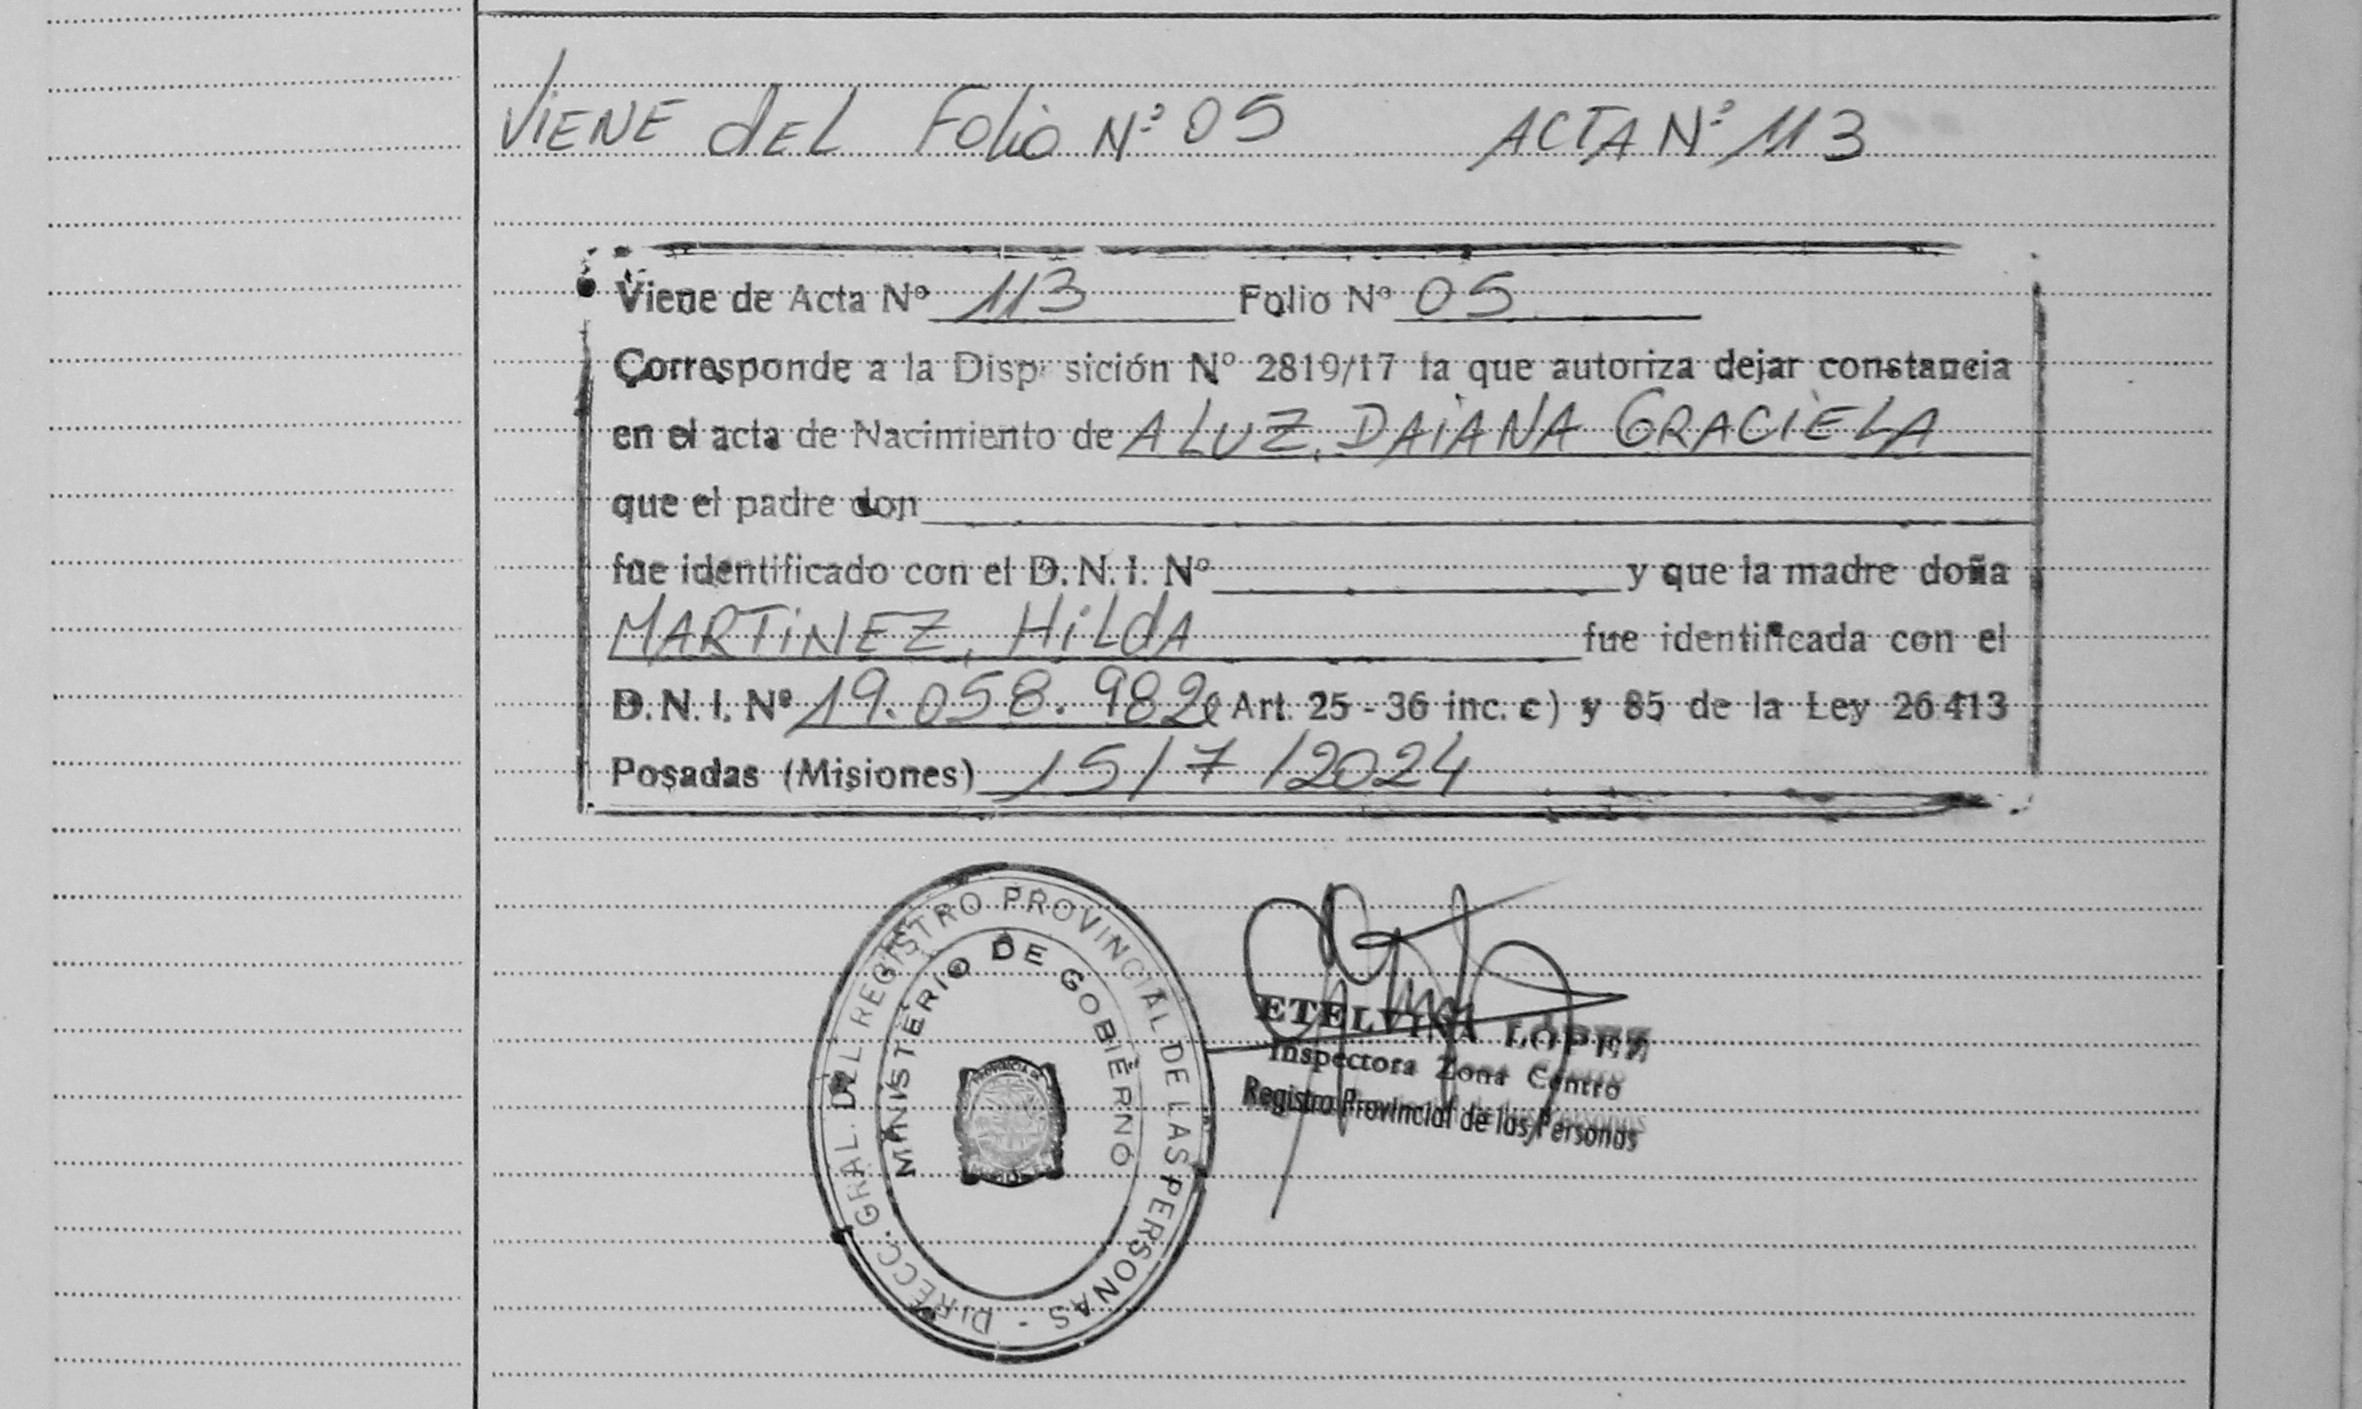 VIENE DEL Folio Nº 05 ACTA Nº 113
Viene de Acta Nº 113 Folio Nº 05
Corresponde a la Disp sición Nº 2819/17 la que autoriza dejar constancia
en el acta de Nacimiento de ALUZ, DAIANA GRACIELA
que el padre don
fue identificado con el D. N. I. Nº y que la madre doña
MARTINEZ, HILDA fue identificada con el
D. N. I. Nº 19.058.982 ( Art. 25 - 36 inc. c) y 85 de la Ley 26413
Posadas (Misiones) 15/7/2024
DIRECC. GRAL. DEL REGISTRO PROVINCIAL DE LAS PERSONAS -
MINISTERIO DE GOBIERNO
PROVINCIA DE
ETELVINA LOPEZ
Inspectora Zona Centro
Registro Provincial de las Personas